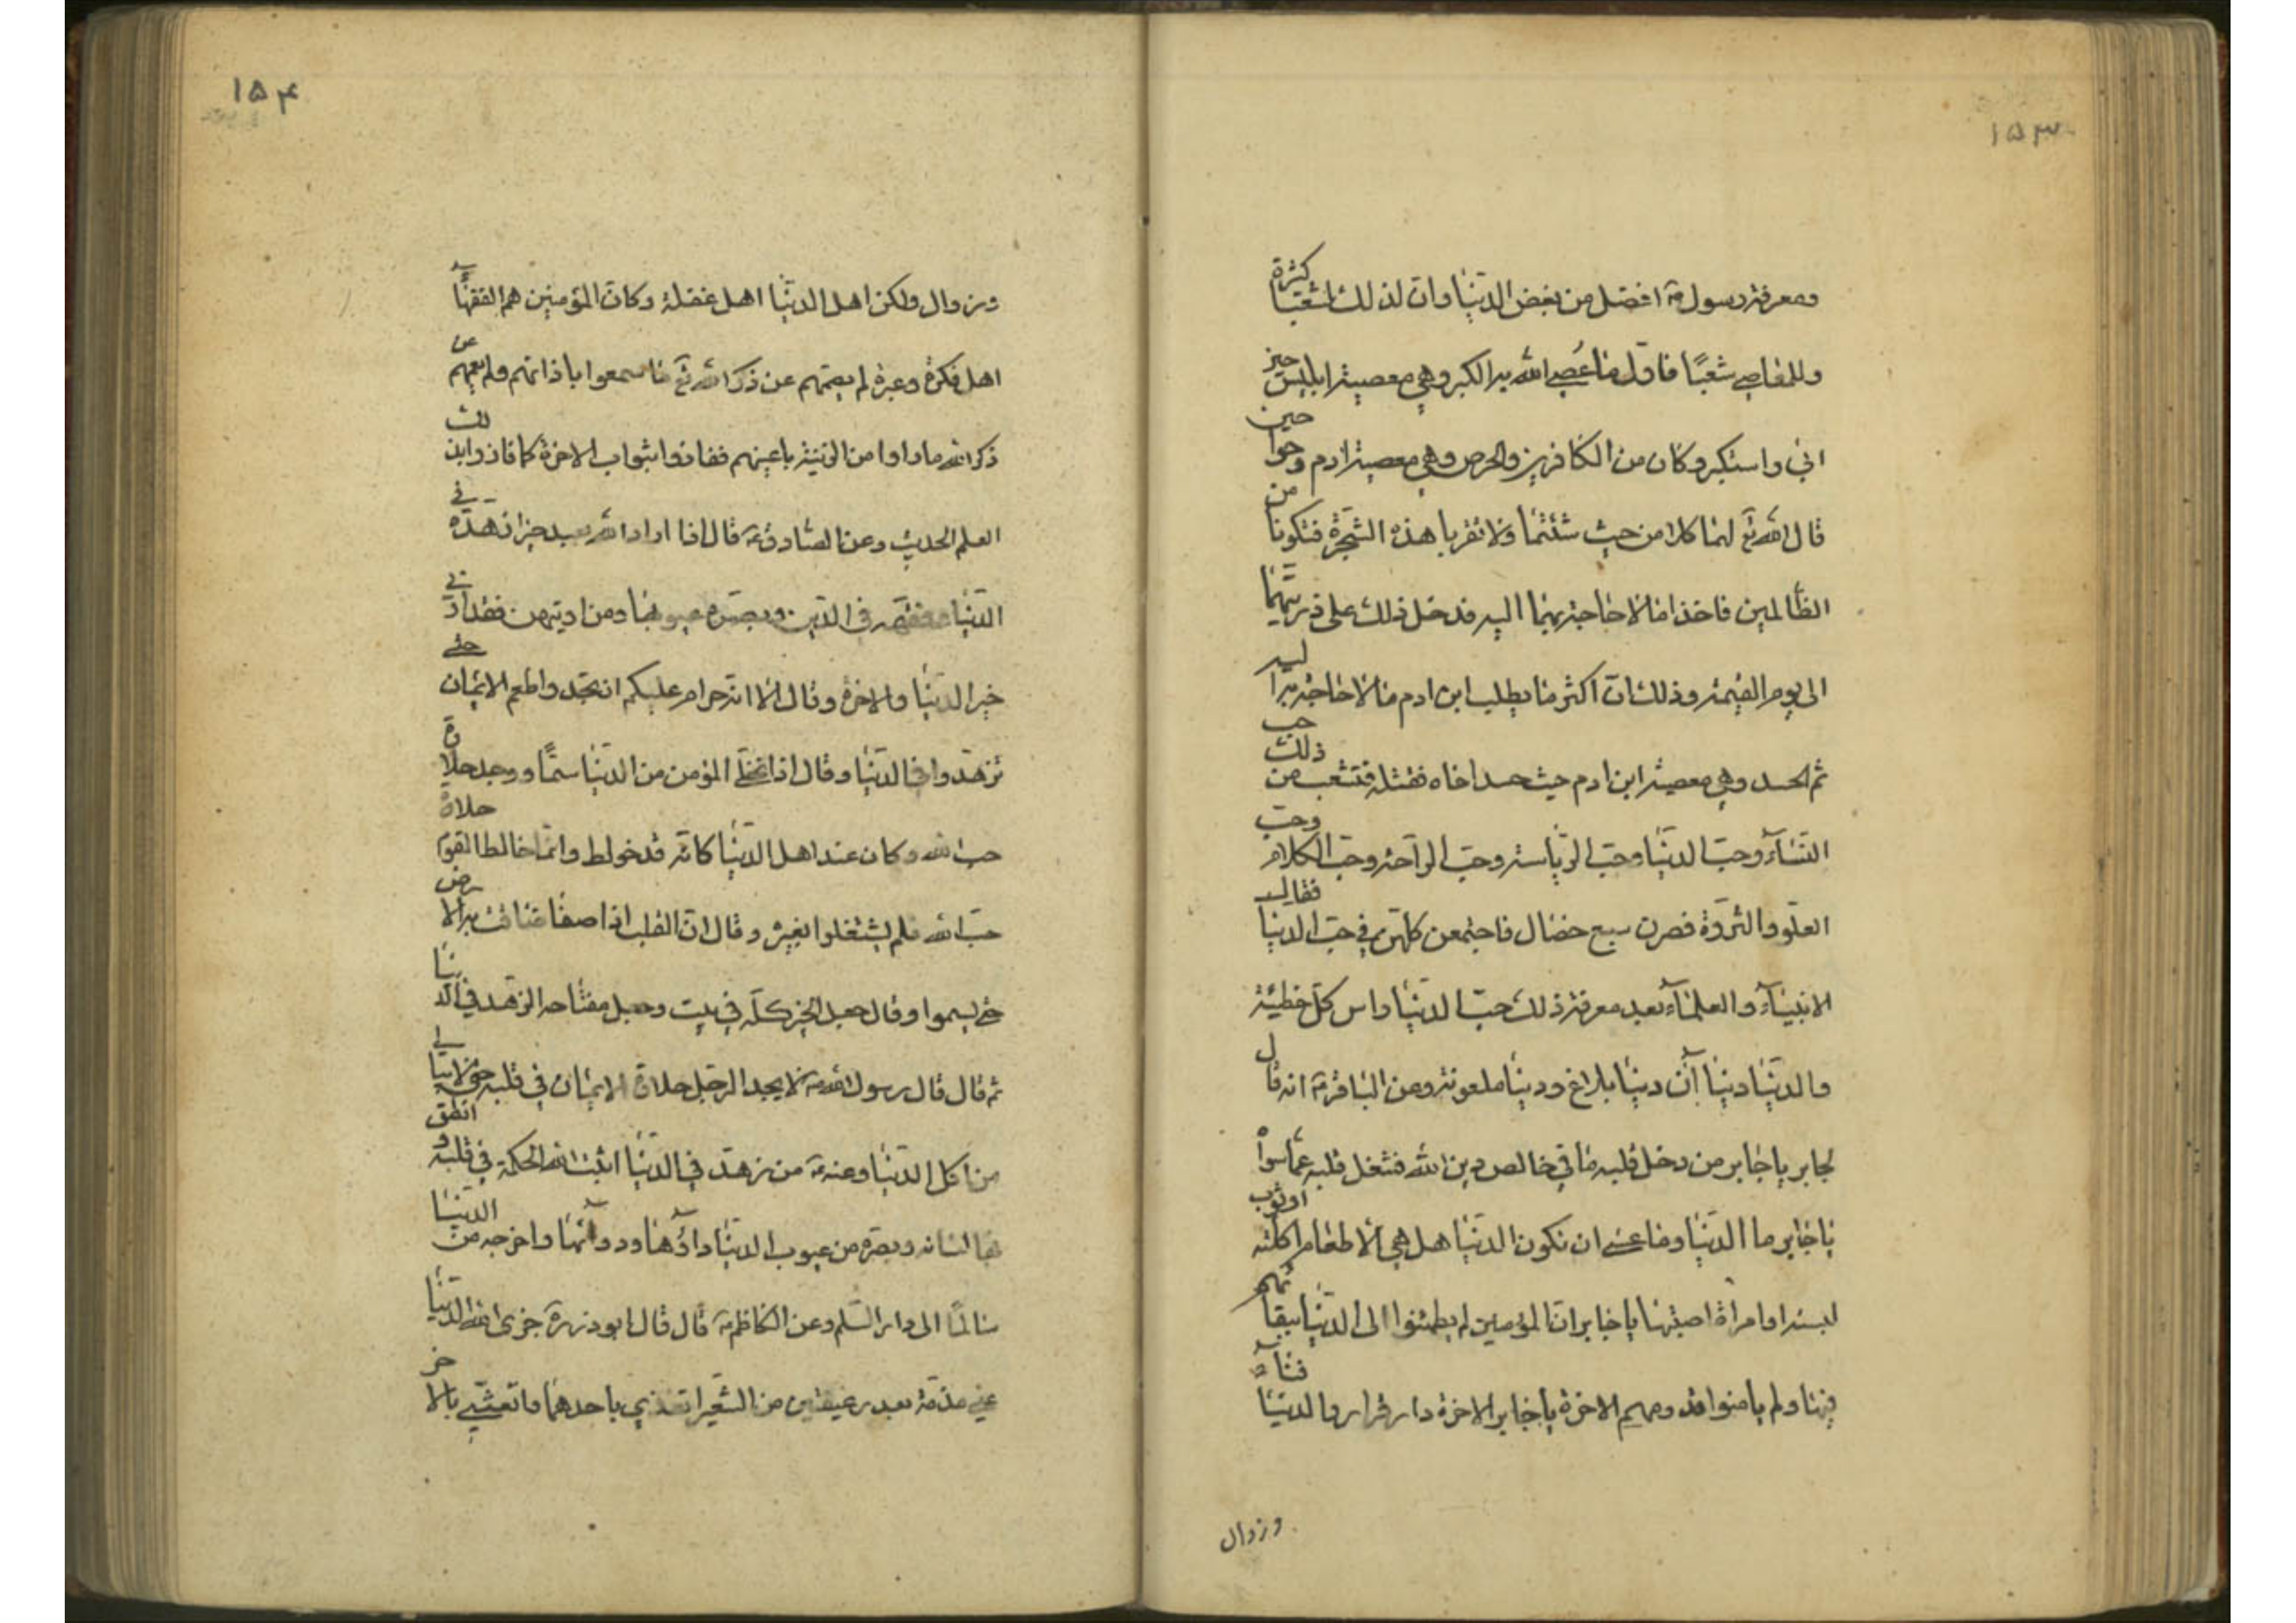 ١٥٣
ومعرفة رسوله ص افضل من بغض الدنيا وان لذلك لشعبا كثيرة
وللمعاصي شعبًا فاول ما عُصي الله به الكبر وهي معصية ابليس حين
ابى واستكبر وكان من الكافرين والحرص وهي معصية ادم وحوا حين
قال الله تع لهما كلا من حيث شئتما ولا تقربا هذه الشجرة فتكونا من
الظالمين فاخذا ما لا حاجة بهما اليه فدخل ذلك على ذريتهما
الى يوم القيمة وذلك ان اكثر ما يطلب ابن ادم ما لا حاجة به اليه
ثم الحسد وهي معصية ابن ادم حيث حسد اخاه فقتله فتشعب من ذلك حب
النساء وحب الدنيا وحب الرياسة وحب الراحة وحب الكلام وحب
العلو والثروة فصرن سبع خصال فاجتمعن كلهن في حب الدنيا فقال
الانبياء والعلماء بعد معرفة ذلك حب الدنيا راس كل خطيئة
والدنيا دنياآن دنيا بلاغ ودنيا ملعونة وعن الباقر ع انه قال
لجابر يا جابر من دخل قلبه صافي خالص دين الله شغل قلبه عما سواه
يا جابر ما الدنيا وما عسى ان تكون الدنيا هل هي الا طعام اكلته او ثوب
لبسته او امراة اصبتها يا جابر ان المؤمنين لم يطمئنوا الى الدنيا ببقائهم
فيها ولم يامنوا قدومهم الاخرة يا جابر الاخرة دار قرار والدنيا دار فناء
وزوال
١٥۴
وزوال ولكن اهل الدنيا اهل غفلة وكان المؤمنين هم الفقهاء
اهل فكرة وعبرة لم يصمهم عن ذكر الله تع ما سمعوا باذانهم ولم يعمهم عن
ذكر الله ما راوا من الزينة باعينهم ففازوا بثواب الاخرة كما فازوا بذلك
العلم الحديث وعن الصادق ع قال اذا اراد الله بعبد خيرا زهده في
الدنيا وفقهه في الدين وبصره عيوبها ومن اوتيهن فقد اوتي
خير الدنيا والاخرة وقال الا انه حرام عليكم ان تجدوا طعم الايمان حتى
تزهدوا في الدنيا وقال اذا تخلى المؤمن من الدنيا سما ووجد حلاوة
حب الله وكان عند اهل الدنيا كانه قد خولط وانما خالط القوم حلاوة
حب الله فلم يشتغلوا بغيره وقال ان القلب اذا صفا ضاقت به الارض
حتى يسموا وقال جعل الخير كله في بيت وجعل مفتاحه الزهد في الدنيا
ثم قال قال رسول الله ص لا يجد الرجل حلاوة الايمان في قلبه حتى لا يبالي
من اكل الدنيا وعنه ع من زهد في الدنيا اثبت الله الحكمة في قلبه وانطق
بها لسانه وبصره من عيوب الدنيا داءها ودواءها واخرجه من الدنيا
سالمًا الى دار السلم وعن الكاظم ع قال قال ابوذر ره جزى الله الدنيا
عني مذمة بعد رغيفين من الشعير اتغذى باحدهما واتعشى بالاخر